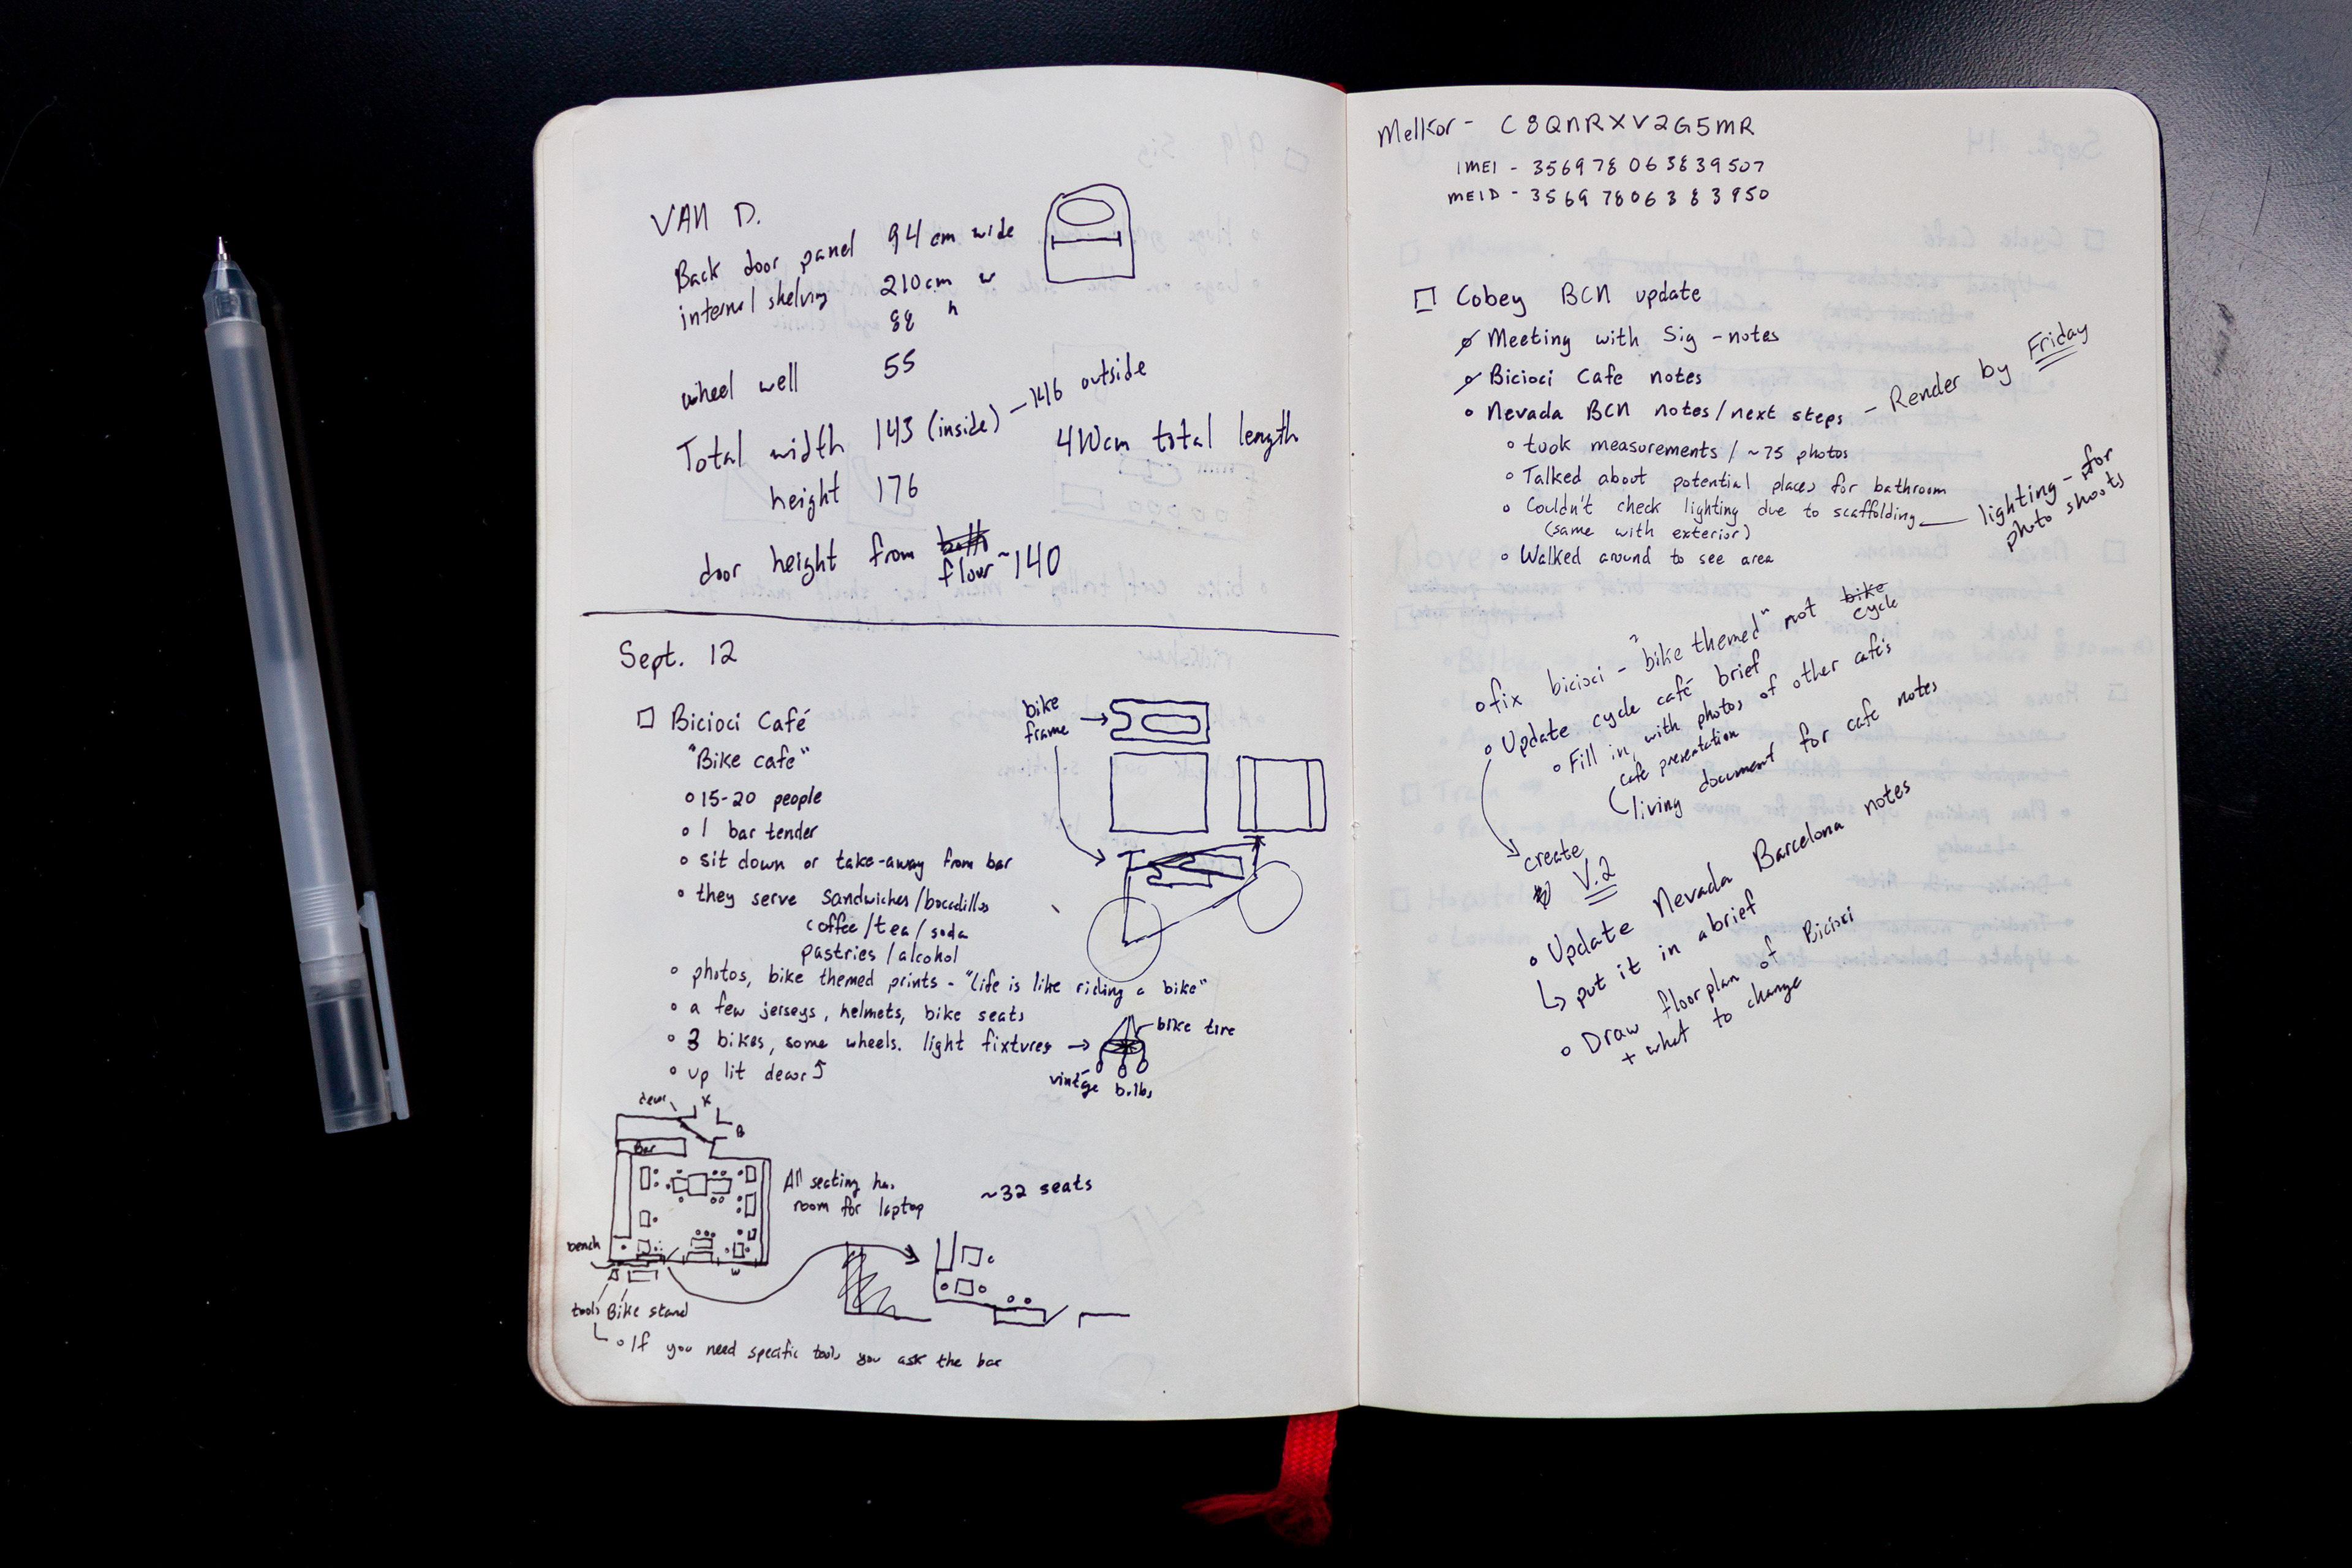 VAN D.
Back door panel 94 cm wide
internal shelving 210cm w
88 h
wheel well 55
Total width 143 (inside) – 146 outside
410cm total length
height 176
door height from
floor ~140
Sept. 12
Bicioci Café
"Bike cafe"
15-20 people
1 bar tender
sit down or take-away from bar
they serve sandwiches/bocadillos
coffee/tea/soda
pastries/alcohol
photos, bike themed prints - "Life is like riding a bike"
a few jerseys, helmets, bike seats
3 bikes, some wheels. light fixtures →
up lit decor
bike
frame
bike tire
vintage bulbs
K
B
Bar
All seating has
room for laptop
~32 seats
bench
W
tools Bike stand
If you need specific tools you ask the bar
Melkor - C8QNRXV2G5MR
IMEI - 356978063839507
MEID - 35697806383950
Cobey BCN update
Meeting with Sig - notes
Bicioci Cafe notes
Nevada BCN notes/next steps - Render by Friday
took measurements / ~75 photos
Talked about potential places for bathroom
Couldn't check lighting due to scaffolding — lighting - for
photo shoots
(same with exterior)
Walked around to see area
fix bicioci - "bike themed" not bike
cycle
Update cycle café brief
Fill in with photos of other cafés
cafe presentation
living document for cafe notes
create
V.2
Update Nevada Barcelona notes
↳ put it in a brief
Draw floorplan of Bicioci
+ what to change